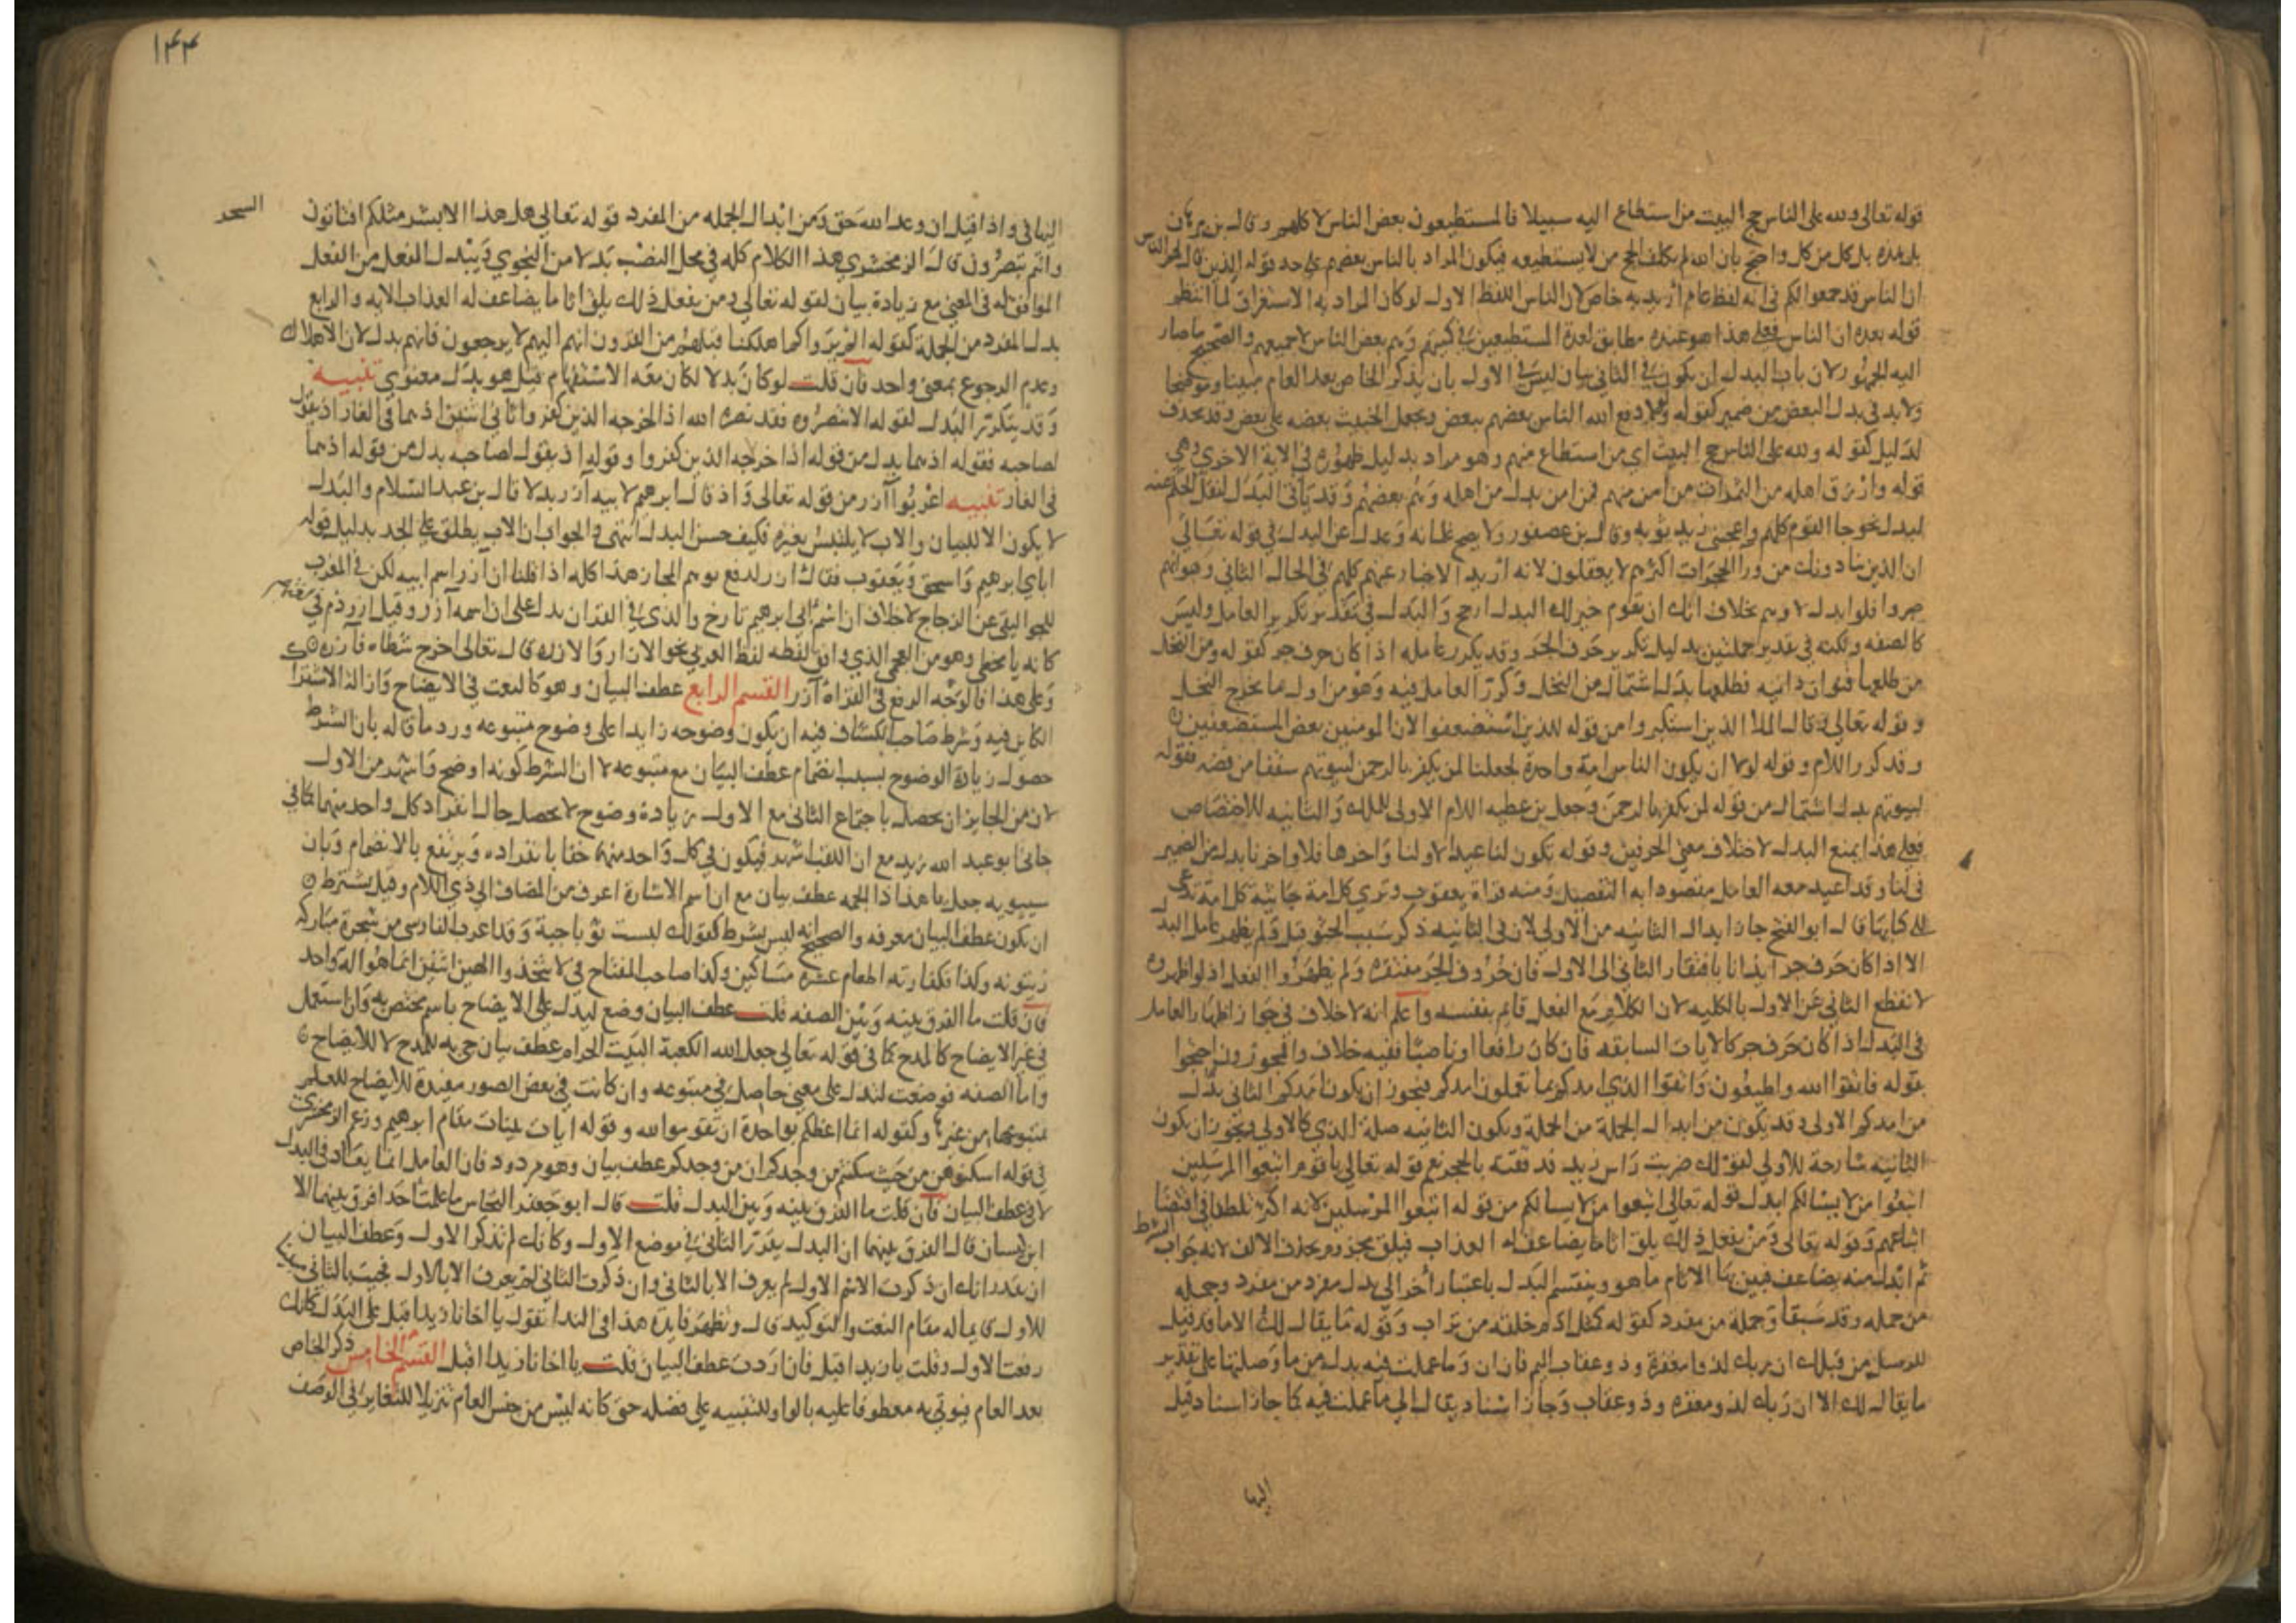 قوله تعالى ولله على الناس حج البيت من استطاع اليه سبيلا فالمستطيعون بعض الناس لا كلهم وقال بن برهان
بل هذه بدل كل من كل واحتج بان الله لم يكلف الحج من لا يستطيعه فيكون المراد بالناس بعضهم على حد قوله الذين قال لهم الناس
ان الناس قد جمعوا لكم في انه لفظ عام اريد به خاص لان الناس اللفظ الاول لو كان المراد به الاستغراق لما انتظم
قوله بعده ان الناس فعلى هذا هو عنده مطابق لعدة المستطيعين في كميتهم وهم بعض الناس لا جميعهم والصحيح ما صار
اليه الجمهور لان باب البدل ان يكون في الثاني بيان ليس في الاول بان يذكر الخاص بعد العام مبينا وموضحا
ولا بد في بدل البعض من ضمير كقوله ولولا دفع الله الناس بعضهم ببعض ويجعل الخبيث بعضه على بعض وقد يحذف
لدليل كقوله ولله على الناس حج البيت اي من استطاع منهم وهو مراد بدليل ظهوره في الاية الاخرى وهي
قوله وارزق اهله من الثمرات من امن منهم فمن امن بدل من اهله وهم بعضهم وقد ياتي البدل لنقل الحكم عن
المبدل نحو جا القوم كلهم واعجبني زيد ثوبه وقال بن عصفور ولا يصح غلمانه وعدل عن البدل في قوله تعالى
ان الذين ينادونك من ورا الحجرات اكثرهم لا يعقلون لانه اريد الاخبار عنهم كلهم في الحال الثاني وهو انهم
صبروا فلو ابدل لا وهم بخلاف انك ان تقوم خير لك البدل ارجح والبدل في تقدير تكرير العامل وليس
كالصفه ولكنه في تقدير جملتين بدليل تكرير حرف الجر وقد يكرر عامله اذا كان حرف جر كقوله ومن النخل
من طلعها قنوان دانيه فطلعها بدل اشتمال من النخل وكرر العامل فيه وهو من اول ما يخرج النخل
وقوله تعالى قال الملا الذين استكبروا من قومه للذين استضعفوا لان المومنين بعض المستضعفين
وقد كرر اللام وقوله لولا ان يكون الناس امة واحدة لجعلنا لمن يكفر بالرحمن لبيوتهم سقفا من فضه فقوله
لبيوتهم بدل اشتمال من قوله لمن يكفر بالرحمن وجعل بن عطيه اللام الاولى للملك والثانيه للاختصاص
فعلى هذا يمتنع البدل لاختلاف معنى الحرفين وقوله تكون لنا عيدا لاولنا واخرنا فلاولنا واخرنا بدل من الضمير
في لنا وقد اعيد معه العامل مقصودا به التفصيل ومنه قراة يعقوب وترى كل امة جاثيه كل امة تدعى
الى كتابها قال ابو الفتح جاز ابدال الثانيه من الاولى لان في الثانيه ذكر سبب الجثو قيل ولم يظهر عامل البدل
الا اذا كان حرف جر ايذانا بافتقار الثاني الى الاول فان حروف الجر مفتقره ولم يظهروا الفعل اذ لو اظهروه
لانقطع الثاني عن الاول بالكليه لان الكلام مع الفعل قايم بنفسه واعلم انه لا خلاف في جواز اظهار العامل
في البدل اذا كان حرف جر كالايات السابقه فان كان رافعا او ناصبا ففيه خلاف والمجوزون احتجوا
بقوله فاتقوا الله واطيعون واتقوا الذي امدكم بما تعلمون امدكم فيجوز ان يكون امدكم الثاني بدل
من امدكم الاولى وقد يكون من ابدال الجملة من الجملة وتكون الثانيه صلة الذي كالاولى ويجوز ان يكون
الثانيه شارحة للاولى كقولك ضربت راس زيد قذفته بالحجر نحو قوله تعالى يا قوم اتبعوا المرسلين
اتبعوا من لا يسالكم ابدل قوله تعالى اتبعوا من لا يسالكم من قوله اتبعوا المرسلين لانه اكثر تلطفا في اقتضا
اتباعهم وقوله تعالى ومن يفعل ذلك يلق اثاما يضاعف له العذاب فيلق مجزوم بحذف الالف لانه جواب الشرط
ثم ابدل منه يضاعف فبين بها الاثام ما هو وينقسم البدل باعتبار اخر الى بدل مفرد من مفرد وجمله
من جمله وقد سبقا وجملة من مفرد كقوله كمثل ادم خلقه من تراب وقوله ما يقال لك الا ما قد قيل
للرسل من قبلك ان ربك لذو مغفرة وذو عقاب اليم فان ان وما عملت فيه بدل من ما وصلتها على تقدير
ما يقال لك الا ان ربك لذو مغفره وذو عقاب وجاز اسناد يقال الى ما عملت فيه كما جاز اسناد قيل
اليها
١٤٤
اليها في واذا قيل ان وعد الله حق ومن ابدال الجمله من المفرد قوله تعالى هل هذا الا بشر مثلكم افتاتون السحر
وانتم تبصرون قال الزمخشري هذا الكلام كله في محل النصب بدلا من النجوى ويبدل الفعل من الفعل
الموافق له في المعنى مع زيادة بيان لقوله تعالى ومن يفعل ذلك يلق اثاما يضاعف له العذاب الايه والرابع
بدل المفرد من الجملة كقوله الم يروا كم اهلكنا قبلهم من القرون انهم اليهم لا يرجعون فانهم بدل لان الاهلاك
وعدم الرجوع بمعنى واحد فان قلت لو كان بدلا لكان معه الاستفهام قيل هو بدل معنوي تنبيه
وقد يتكرر البدل لقوله الا تنصروه فقد نصره الله اذ اخرجه الذين كفروا ثاني اثنين اذ هما في الغار اذ يقول
لصاحبه فقوله اذ هما بدل من قوله اذ اخرجه الذين كفروا وقوله اذ يقول لصاحبه بدل من قوله اذ هما
في الغار تنبيه اعربوا آزر من قوله تعالى واذ قال ابرهيم لابيه آزر بدلا قال بن عبد السلام والبدل
لا يكون الا للبيان والاب لا يلتبس بغيره فكيف حسن البدل انتهى والجواب ان الاب يطلق على الجد بدليل قوله
اباي ابرهيم واسحق ويعقوب فقال ازر لدفع توهم المجاز هذا كله اذا قلنا ان آزر اسم ابيه لكن في المعرب
للجواليقي عن الزجاج لا خلاف ان اسم ابي ابرهيم تارخ والذي في القران يدل على ان اسمه آزر وقيل ازر ذم في لغتهم
كانه يا مخطي وهو من العجمي الذي وافق لفظه لفظ العربي نحو الازار والازره قال تعالى اخرج شطاه فآزره
وعلى هذا فالوجه الرفع في القراة آزر القسم الرابع عطف البيان وهو كالنعت في الايضاح وازالة الاشتراك
الكاين فيه وشرط صاحب الكشاف فيه ان يكون وضوحه زايدا على وضوح متبوعه ورد ما قاله بان الشرط
حصول زيادة الوضوح بسبب انضمام عطف البيان مع متبوعه لا ان الشرط كونه اوضح واشهر من الاول
لان من الجايز ان يحصل باجتماع الثاني مع الاول زيادة وضوح لا يحصل حال انفراد كل واحد منهما كما في
جاني ابو عبد الله زيد مع ان اللقب اشهر فيكون في كل واحد منهما خفا بانفراده ويرتفع بالانضمام وبان
سيبويه جعل يا هذا ذا الجمه عطف بيان مع ان اسم الاشارة اعرف من المضاف الى ذي اللام وقيل يشترط
ان يكون عطف البيان معرفه والصحيح انه ليس بشرط كقولك لبست ثوبا جبة وقد اعرب الفارسي من شجرة مباركه
زيتونه وكذا فكفارته اطعام عشره مساكين وكذا صاحب المفتاح في لا تتخذوا الهين اثنين انما هو اله واحد
فان قلت ما الفرق بينه وبين الصفه قلت عطف البيان وضع ليدل على الايضاح باسم مختص به وان استعمل
في غير الايضاح كالمدح كما في قوله تعالى جعل الله الكعبة البيت الحرام عطف بيان جي به للمدح لا للايضاح
واما الصفه فوضعت لتدل على معنى حاصل في متبوعه وان كانت في بعض الصور مفيدة للايضاح للعلم
بمتبوعها من غيره وكقوله انما اعظكم بواحدة ان تقوموا لله وقوله ايات بينات مقام ابرهيم وزعم الزمخشري
في قوله اسكنوهن من حيث سكنتم من وجدكم ان من وجدكم عطف بيان وهو مردود فان العامل انما يعاد في البدل
لا في عطف البيان فان قلت ما الفرق بينه وبين البدل قلت قال ابو جعفر النحاس ما علمت احدا فرق بينهما الا
ابن كيسان قال الفرق بينهما ان البدل يقرر الثاني في موضع الاول وكانك لم تذكر الاول وعطف البيان
ان تقدر انك ان ذكرت الاسم الاول لم يعرف الا بالثاني وان ذكرت الثاني لم يعرف الا بالاول فجيت بالثاني مبينا
للاول قايما له مقام النعت والتوكيد قال وتظهر فايدة هذا في الندا تقول يا اخانا زيد اقبل على البدل كانك
رفعت الاول وقلت يا زيد اقبل فان اردت عطف البيان قلت يا اخانا زيدا اقبل القسم الخامس ذكر الخاص
بعد العام فيوتى به معطوفا عليه بالواو للتنبيه على فضله حتى كانه ليس من جنس العام تنزيلا للتغاير في الوصف